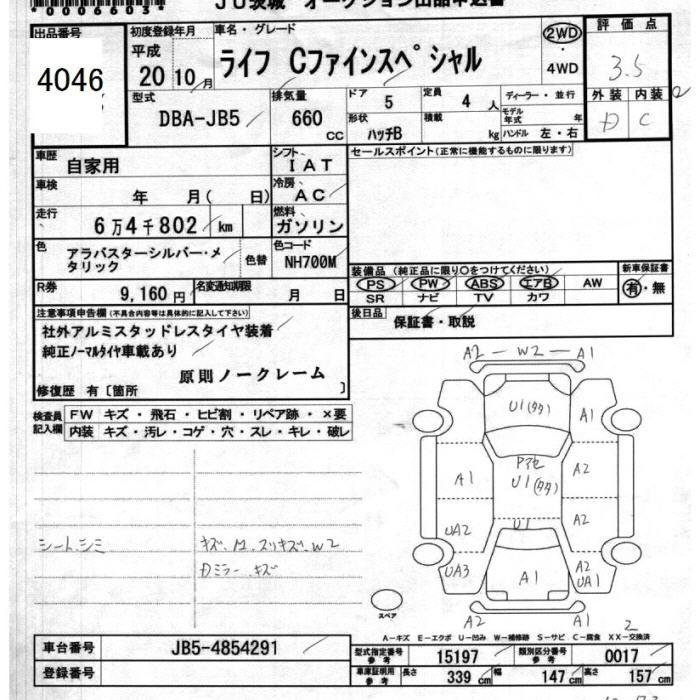 *0006603*
JU茨城 オークション出品申込書
出品番号
4046
初度登録年月
平成
20年10月
車名・グレード
ライフ Cファインスペシャル
2WD
・
4WD
評価点
3.5
外装 内装
D C
型式
DBA-JB5
排気量
660
cc
ドア 5
定員 4 人
ディーラー・並行
モデル年式 年
形状 ハッチB
積載 kg
ハンドル 左・右
車歴 自家用
シフト I AT
セールスポイント(正常に機能するものに限ります)
車検 年 月( 日)
冷房 AC
走行 6万4千802 km
燃料 ガソリン
色 アラバスターシルバー・メタリック
色替
色コード NH700M
装備品 (純正品に限り○をつけてください)
PS PW ABS エアB AW
SR ナビ TV カワ
新車保証書
有・無
R券 9,160円
名変通知期限 月 日
後日品 保証書・取説
注意事項申告欄(不具合内容等は具体的に記入して下さい)
社外アルミスタッドレスタイヤ装着
純正ノーマルタイヤ車載あり
原則ノークレーム
修復歴 有〔箇所 〕
検査員記入欄
FW キズ・飛石・ヒビ割・リペア跡・×要
内装 キズ・汚レ・コゲ・穴・スレ・キレ・破レ
シートシミ
キズ.M.スリキズ.W2
Dミラーキズ
A2 - W2 - A1
U1(タタ)
A1
Pアセ
U1(タタ)
A1
A2
U1
UA2
A2
UA3
A1
A2
UA1
A2
A1
スペア
2
A-キズ E-エクボ U-凹み W-補修跡 S-サビ C-腐食 XX-交換済
車台番号 JB5-4854291
登録番号
型式指定番号 参考 15197
類別区分番号 参考 0017
車庫証明用 参考 長さ 339 cm 幅 147 cm 高さ 157 cm